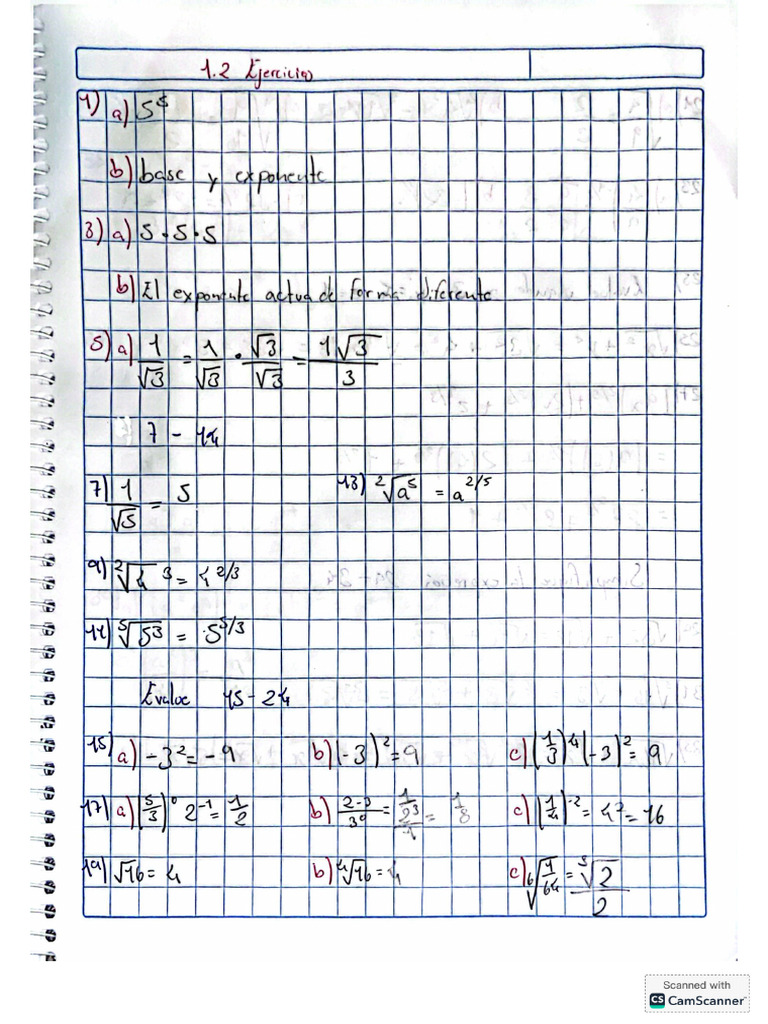 1.2 Ejercicios
1) a) 5⁵
b) base y exponente
3) a) 5 · 5 · 5
b) El exponente actua de forma diferente
5) a) 1/√3 = 1/√3 · √3/√3 = 1√3/3
7 - 14
7) 1/√5 = 5 13) ²√a⁵ = a^2/5
9) ²√4 ³ = 4^2/3
11) ⁵√5³ = 5^5/3
Evalue 15 - 24
15) a) -3² = -9 b) (-3)² = 9 c) (1/3)⁴ (-3)² = 9
17) a) (5/3)⁰ 2⁻¹ = 1/2 b) 2⁻³/3⁰ = 1/2³/1 = 1/8 c) (1/4)⁻² = 4² = 16
19) √16 = 4 b) ⁴√16 = 4 c) ⁶√1/64 = ³√2/2
Scanned with
CS CamScanner